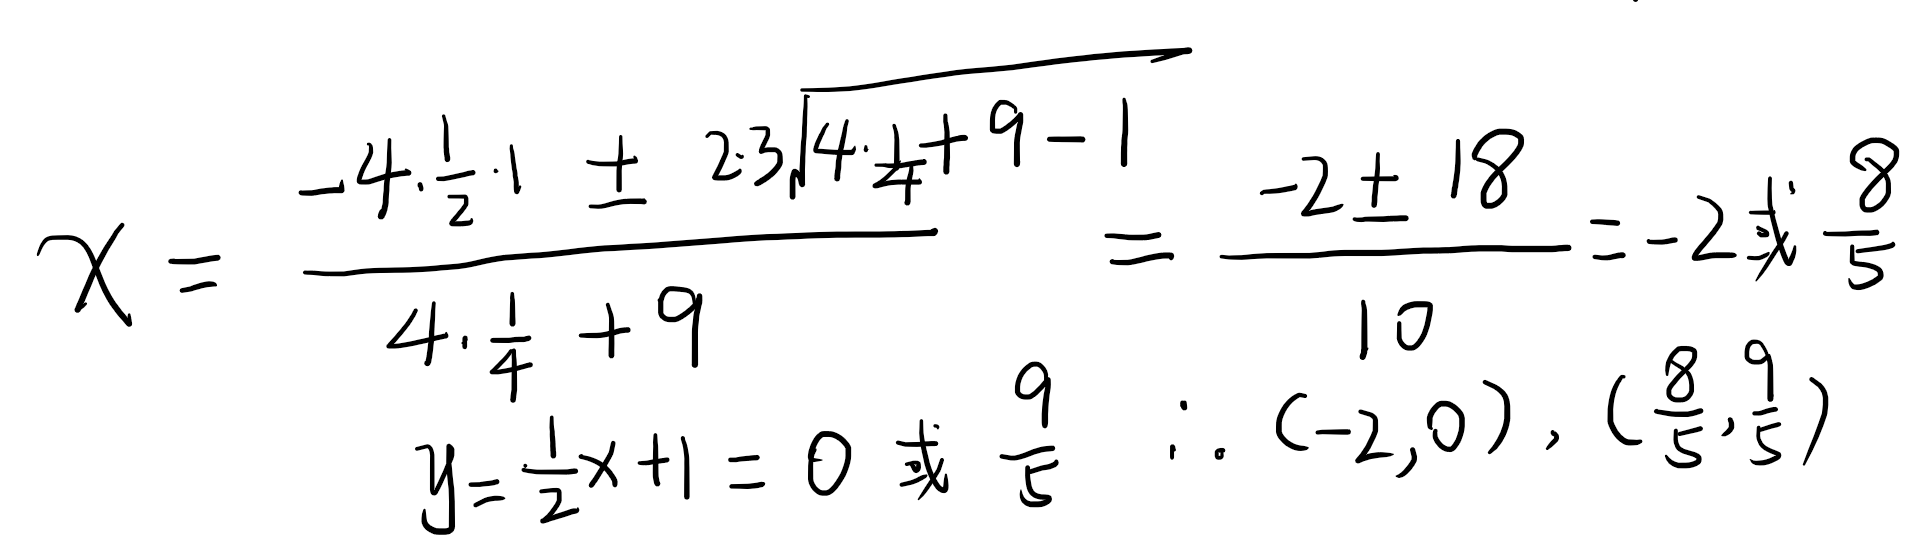 x = \frac{-4·\frac{1}{2}·1 ± 2·3\sqrt{4·\frac{1}{4}+9-1}}{4·\frac{1}{4}+9} = \frac{-2±18}{10} = -2 或 \frac{8}{5}
y = \frac{1}{2}x+1 = 0 或 \frac{9}{5} ∴ (-2,0), (\frac{8}{5},\frac{9}{5})